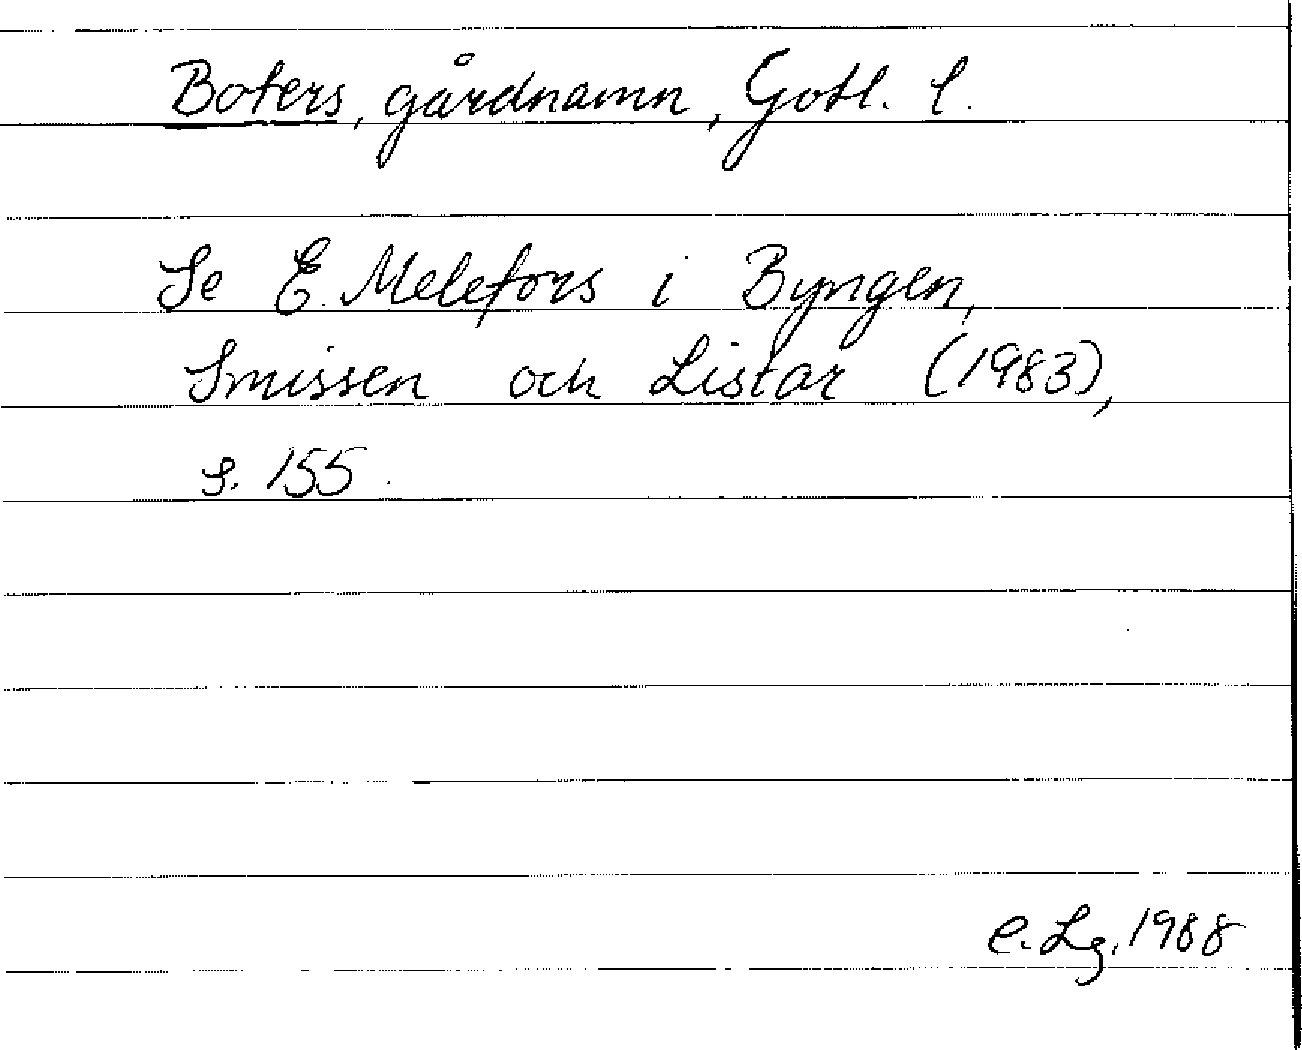 Boters, gårdnamn, Gotl. l.
Se E. Melefors i Byngen,
Smissen och Listar (1983),
s. 155.
C. Lg. 1988